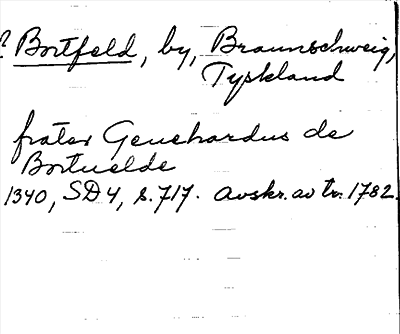 ? Bortfeld, by, Braunschweig,
Tyskland
frater Geuehardus de
Bortuelde
1340, SD 4, s. 717. Avskr. av tr. 1782.